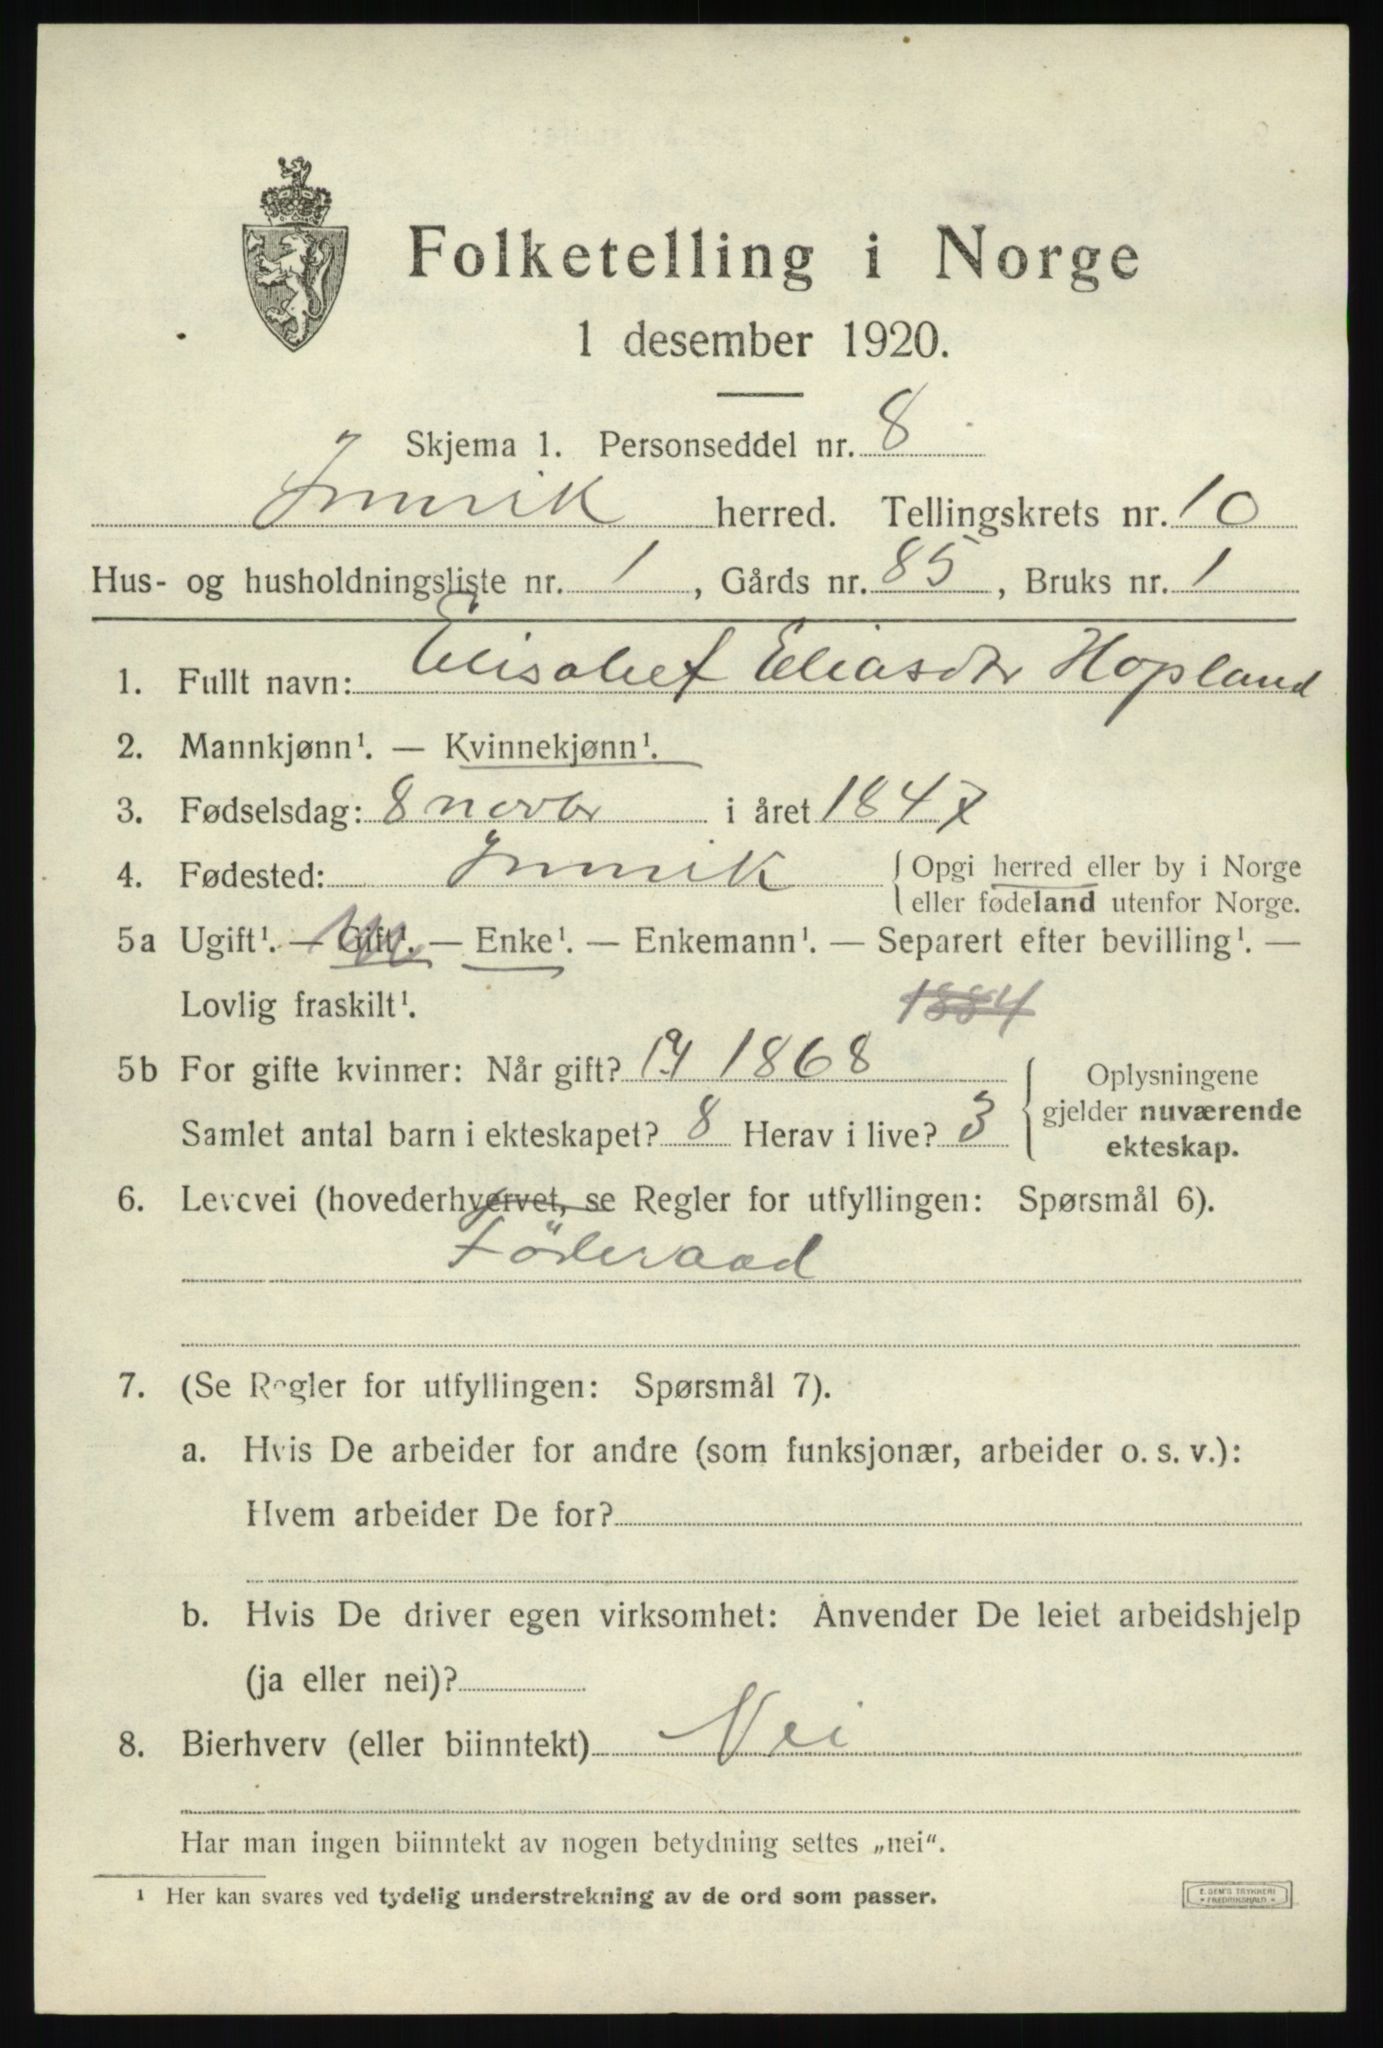 Folketelling i Norge
1 desember 1920.
Skjema 1. Personseddel nr. 8
Innvik herred. Tellingskrets nr. 10
Hus- og husholdningsliste nr. 1, Gårds nr. 85, Bruks nr. 1
1. Fullt navn: Elisabet Eliasdtr Hopland
2. Mannkjønn¹. — Kvinnekjønn¹.
3. Fødselsdag: 8 novbr i året 1847
4. Fødested: Innvik { Opgi herred eller by i Norge
eller fødeland utenfor Norge.
5a Ugift¹. — Gift¹. — Enke¹. — Enkemann¹. — Separert efter bevilling¹. —
Lovlig fraskilt¹.
1884
5b For gifte kvinner: Når gift? 1868
Samlet antal barn i ekteskapet? 8 Herav i live? 3
{ Oplysningene
gjelder nuværende
ekteskap.
6. Levevei (hovederhvervet, se Regler for utfyllingen: Spørsmål 6).
Föderaad
7. (Se Regler for utfyllingen: Spørsmål 7).
a. Hvis De arbeider for andre (som funksjonær, arbeider o. s. v.):
Hvem arbeider De for?
b. Hvis De driver egen virksomhet: Anvender De leiet arbeidshjelp
(ja eller nei)?
8. Bierhverv (eller biinntekt) Nei
Har man ingen biinntekt av nogen betydning settes „nei“.
¹ Her kan svares ved tydelig understrekning av de ord som passer.
E. SEM'S TRYKKERI
FREDRIKSHALD